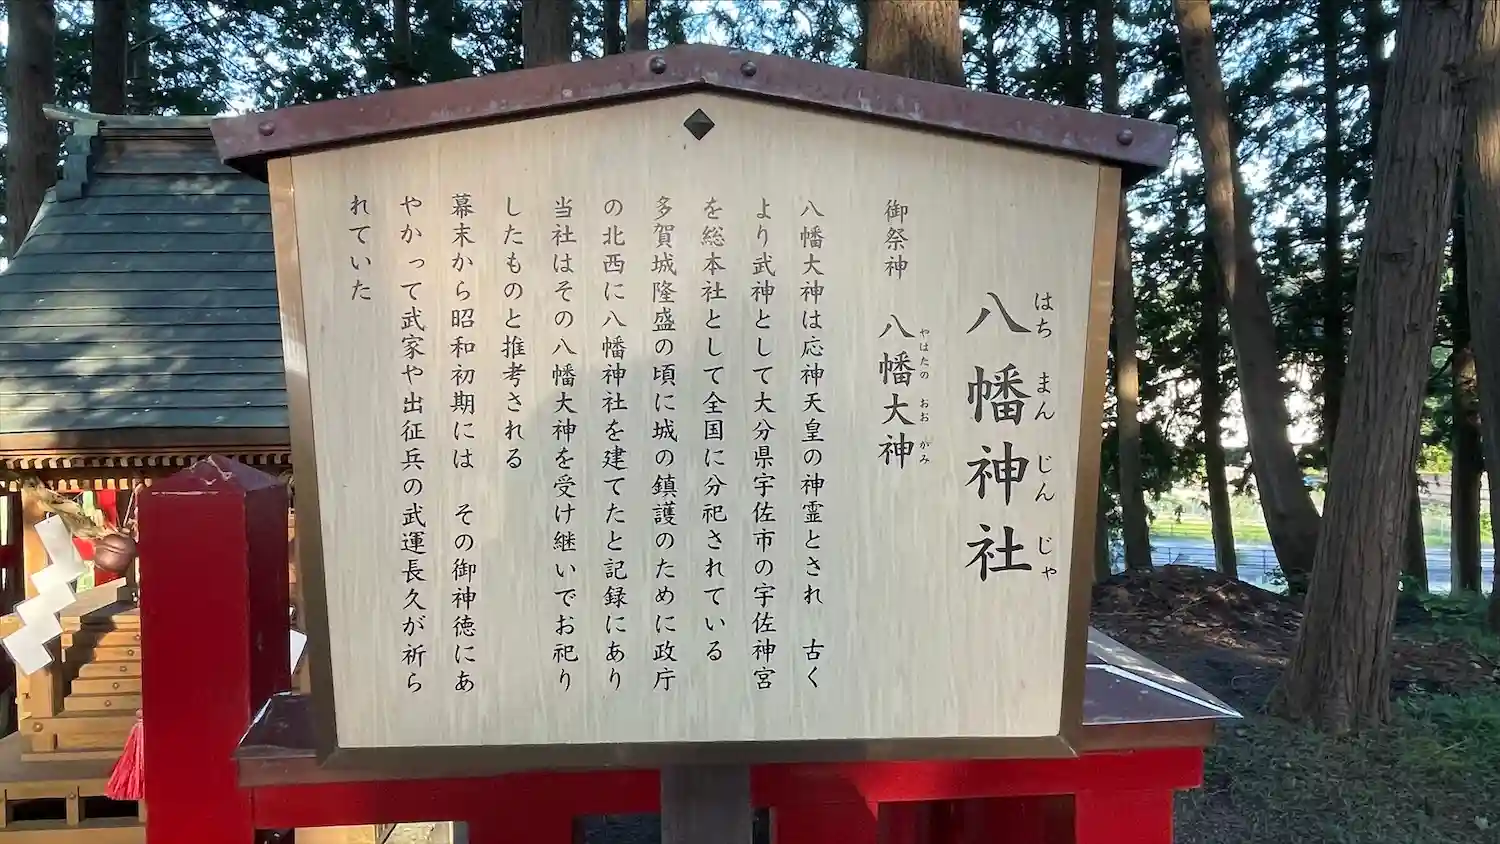 八幡神社
はち まん じん じゃ
御祭神 八幡大神
やはたの おお がみ
八幡大神は応神天皇の神霊とされ 古く
より武神として大分県宇佐市の宇佐神宮
を総本社として全国に分祀されている
多賀城隆盛の頃に城の鎮護のために政庁
の北西に八幡神社を建てたと記録にあり
当社はその八幡大神を受け継いでお祀り
したものと推考される
幕末から昭和初期には その御神徳にあ
やかって武家や出征兵の武運長久が祈ら
れていた